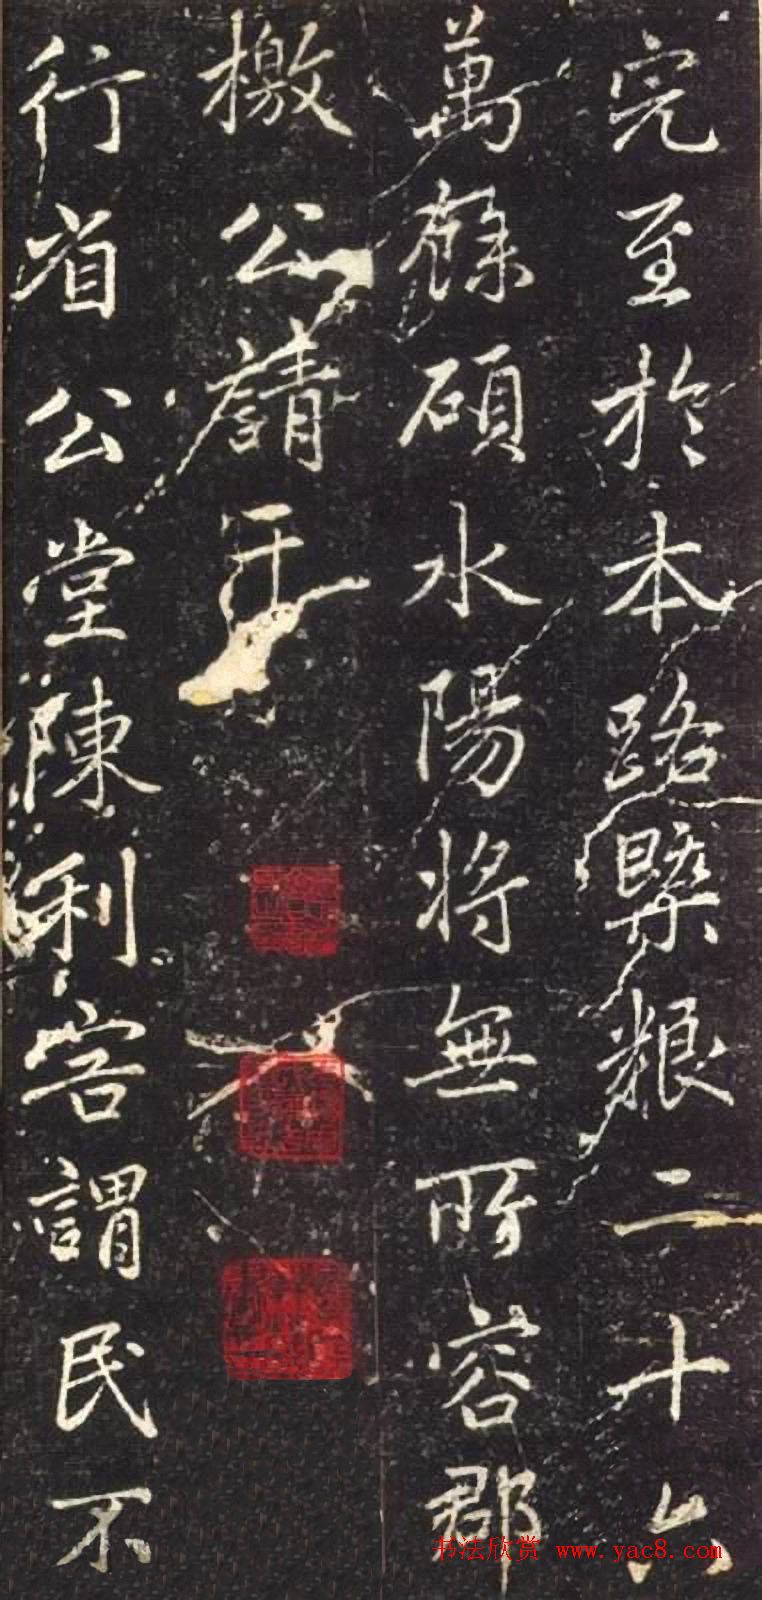 完至於本路槩粮二十六
萬餘碩水陽將無所容郡
檄公請于
行省公堂陳利害謂民不
书法欣赏 www.yac8.com